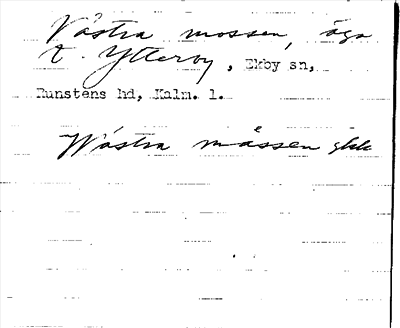 Västra mossen, äga
t. Ytterby, Ekby sn,
Runstens hd, Kalm. l.
Wästra måssen